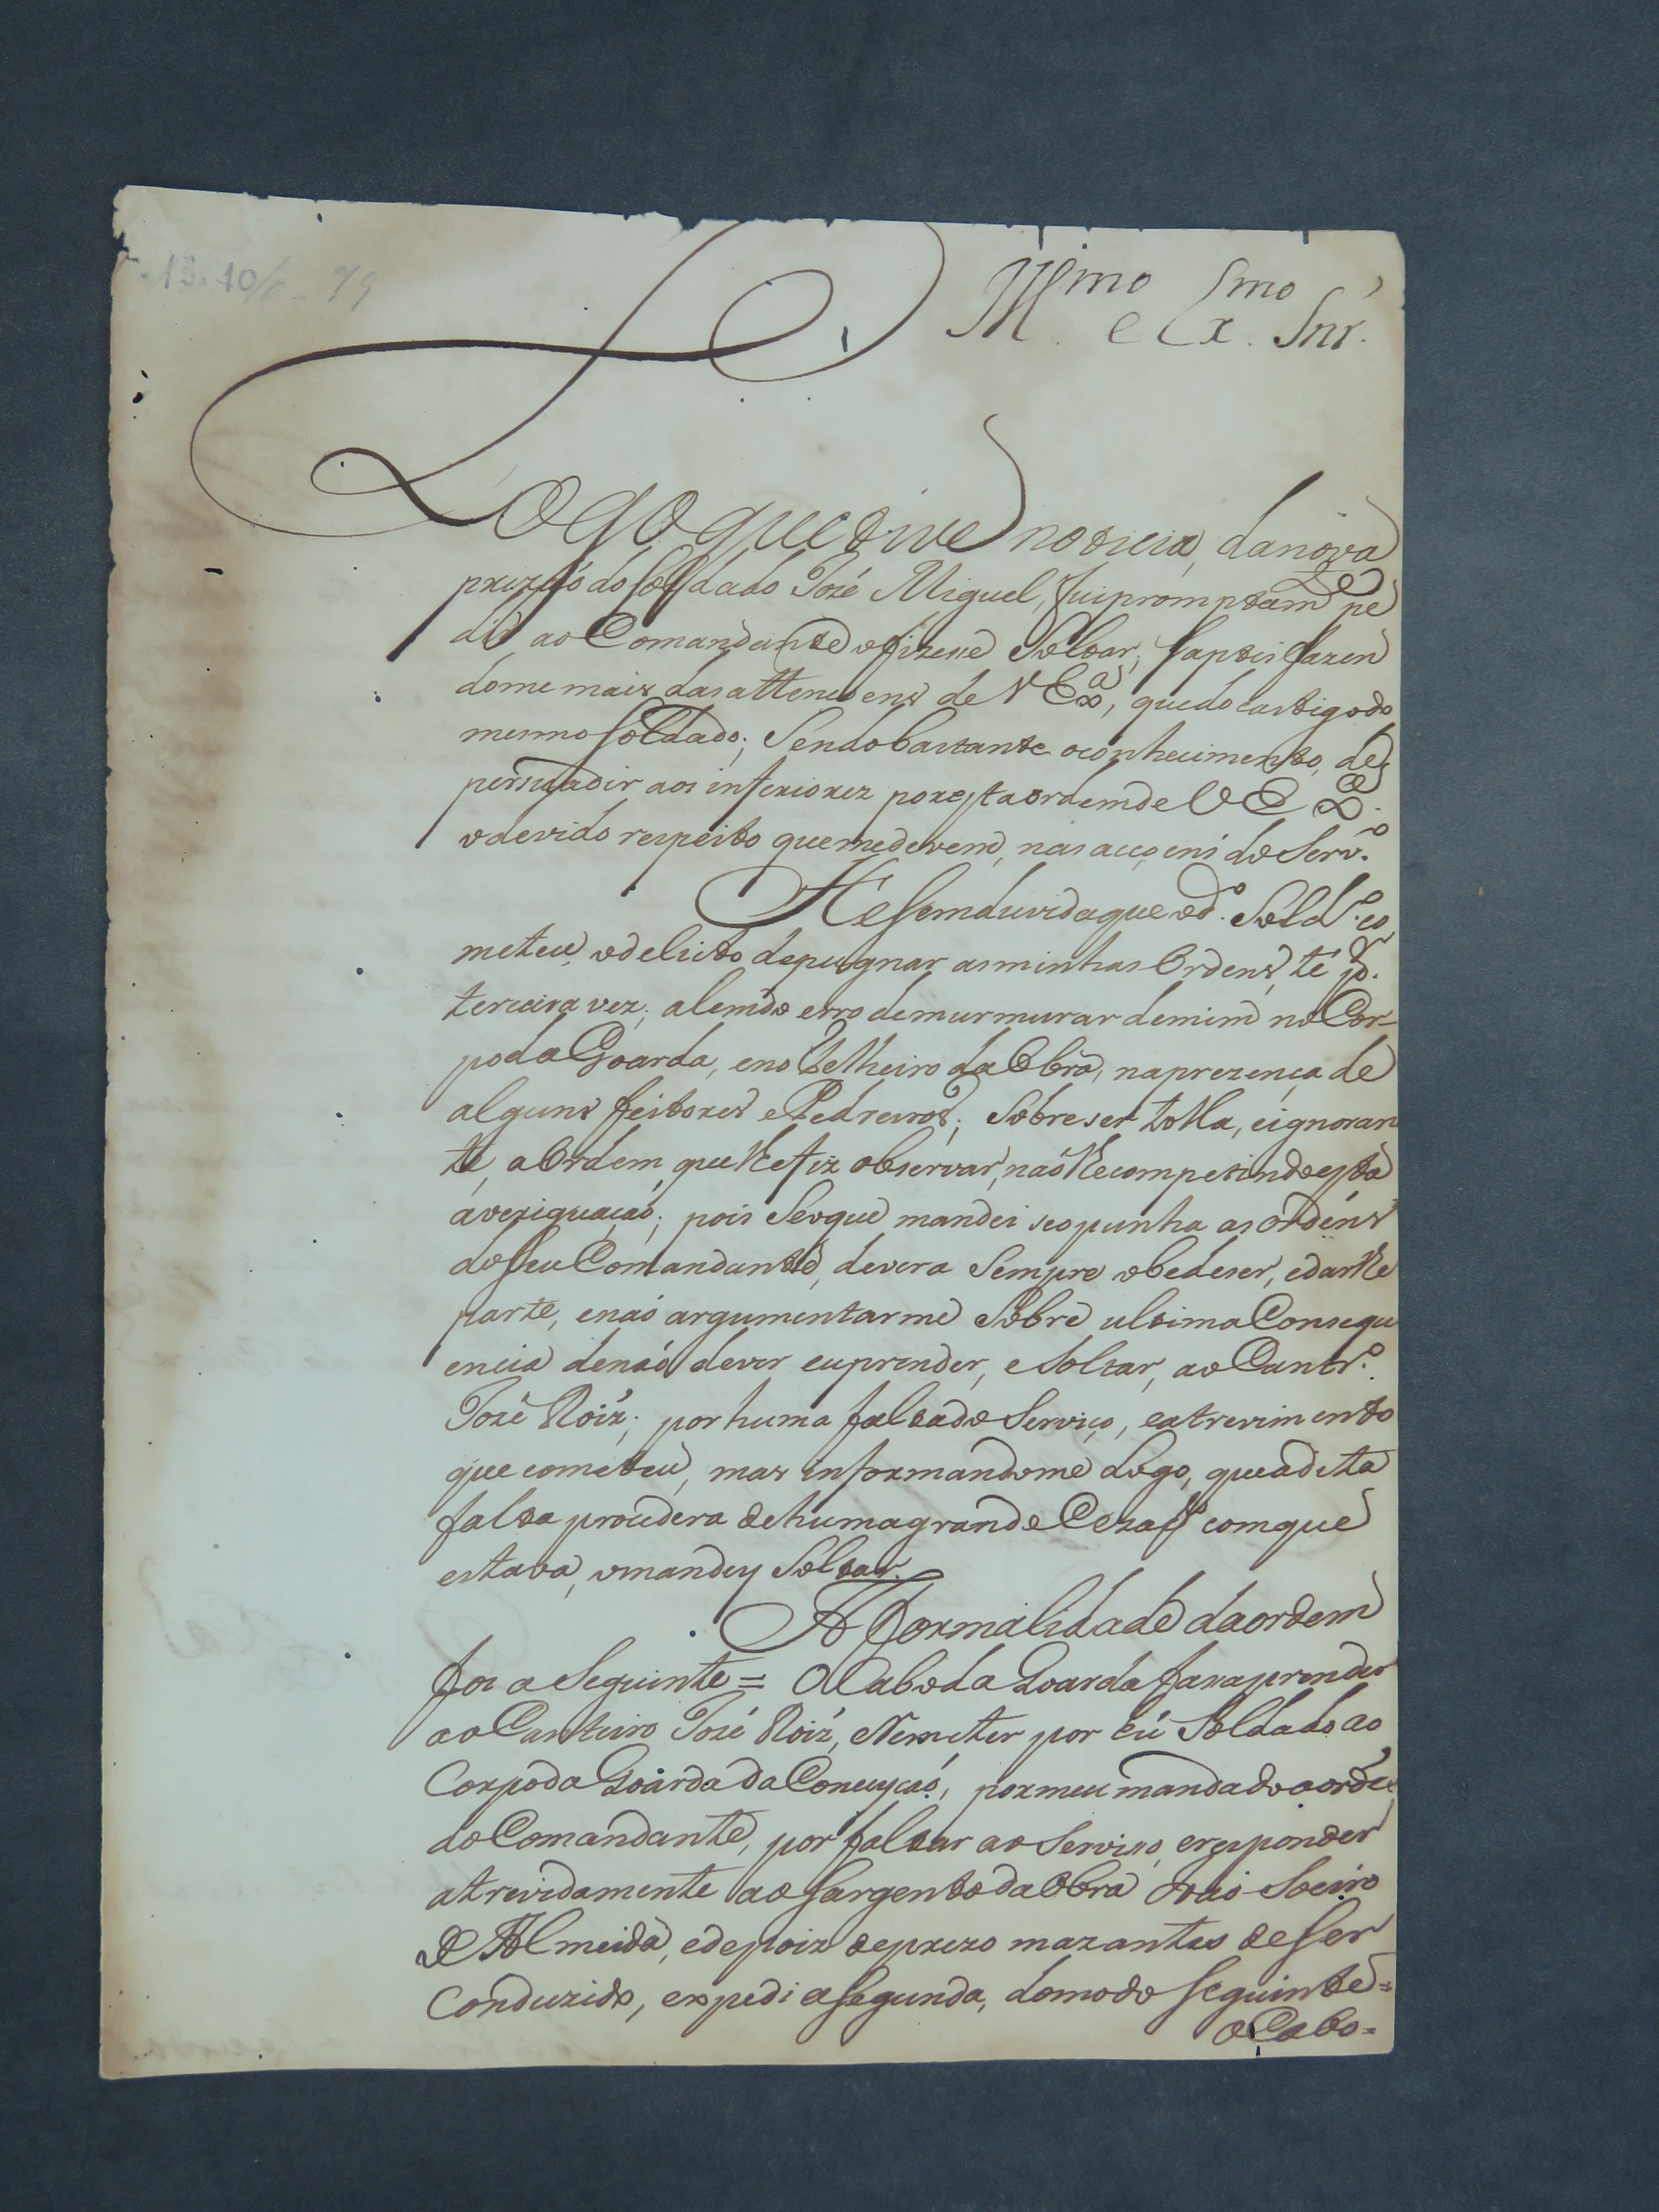 13.10/6 - 79
Ill.mo e Ex.mo Snr.
Logo que tive noticia, da nova
prizaó do Solldado Jozé Miguel, fui promptam.te pe
dir ao Comandante o fizesse Soltar; Saptisfazen
dome mais das attencoens de V Ex.a, que do castigo do
mesmo Solldado; Sendo bastante o conhecimento, de
persuadir aos inferiorez por esta ordem de V E X.a
o devido respeito que me devem, nas accoens do Serv.o
He Sem duvida que o d.o Sold.o co
meteu, o delicto de pugnar as minhas Ordens, té p.r
terceira vez; alem do erro de murmurar de mim no Cor-
po da Goarda, e no Telheiro da Obra, na prezença de
alguns feitores e Pedreiros; Sobre ser tolla, e ignoran
te, a Ordem, que lhe fiz observar, naó lhe competindo esta
averiguaçaó; pois Se o que mandei se opunha as ordéns
do Seu Comandante, devera Sempre obedeser, e dar lhe
parte, e naó argumentarme Sobre ultima Consequ
encia de naó dever eu prender, e Soltar, ao Cantr.o
Jozé Roiz; por huma falta do Serviço, e atrevimento
que cometeu, mas informandome Logo, que a dita
falta procedera de huma grande Cezaõ com que
estava, o mandey Soltar.
A formalidade da ordem
foi a Seguinte = O Cabo da Goarda fara prender
ao Canteiro Jozé Roiz, e Remeter por hú Soldado ao
Corpo da Goarda da Conceyçaó, por meu mandado a ordê
do Comandante, por faltar ao Serviço, e responder
atrevidamente ao Sargento da Obra Joaó Soeiro
de Almeida, e depoiz de prezo maz antes de Ser
Conduzido, expedi a Segunda, do modo Seguinte =
O Cabo =